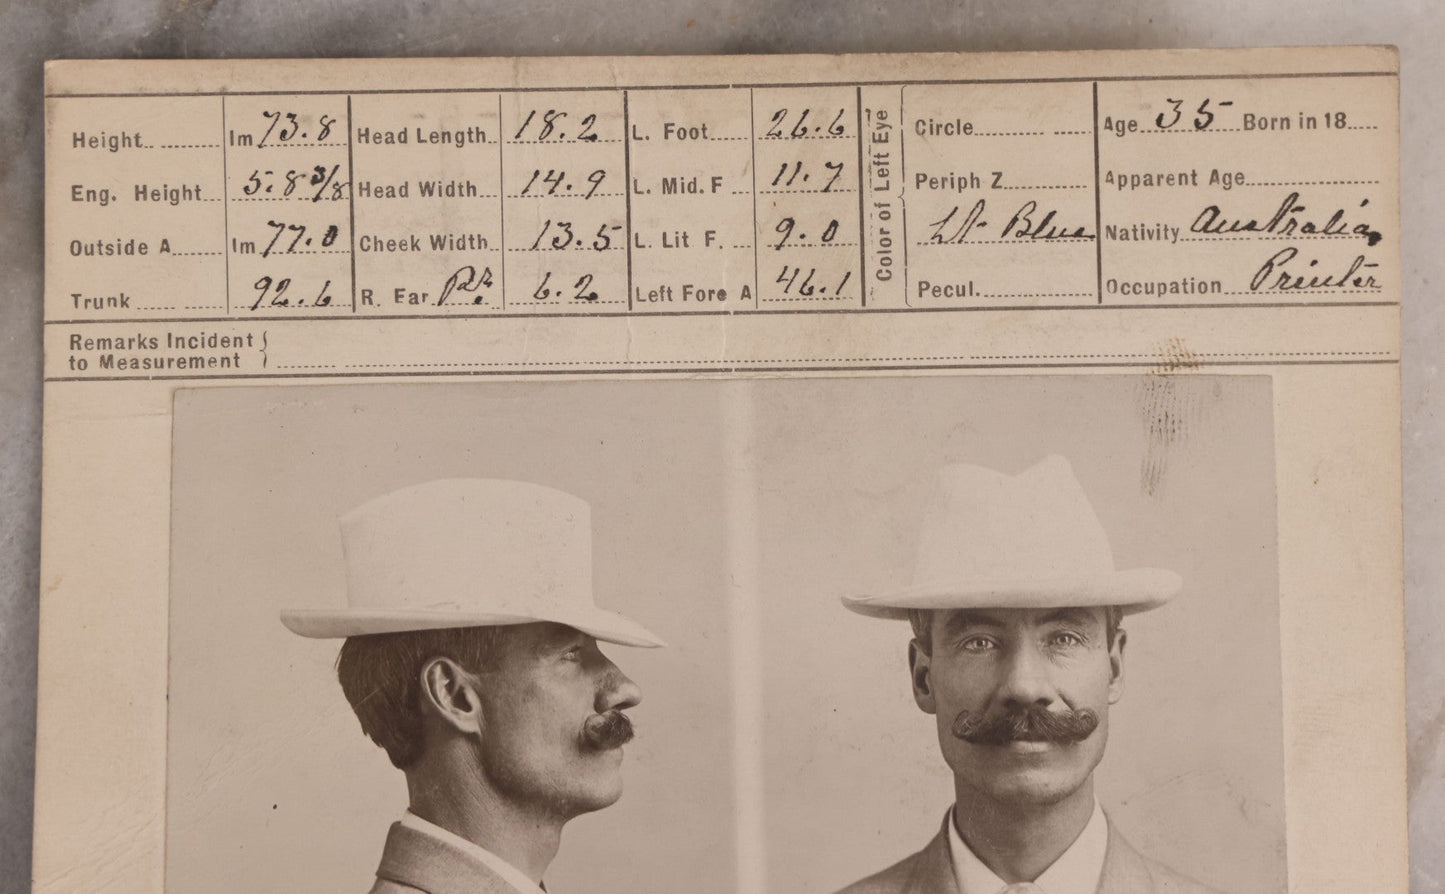 Height 1m 73.8 Head Length 18.2 L. Foot 26.6 Circle Age 35 Born in 18
Eng. Height 5.8 3/8 Head Width 14.9 L. Mid. F 11.7 Periph Z Apparent Age
Outside A 1m 77.0 Cheek Width 13.5 L. Lit F. 9.0 Color of Left Eye Lt Blue Nativity Australia
Trunk 92.6 R. Ear 6.2 Left Fore A 46.1 Pecul. Occupation Printer
Remarks Incident
to Measurement